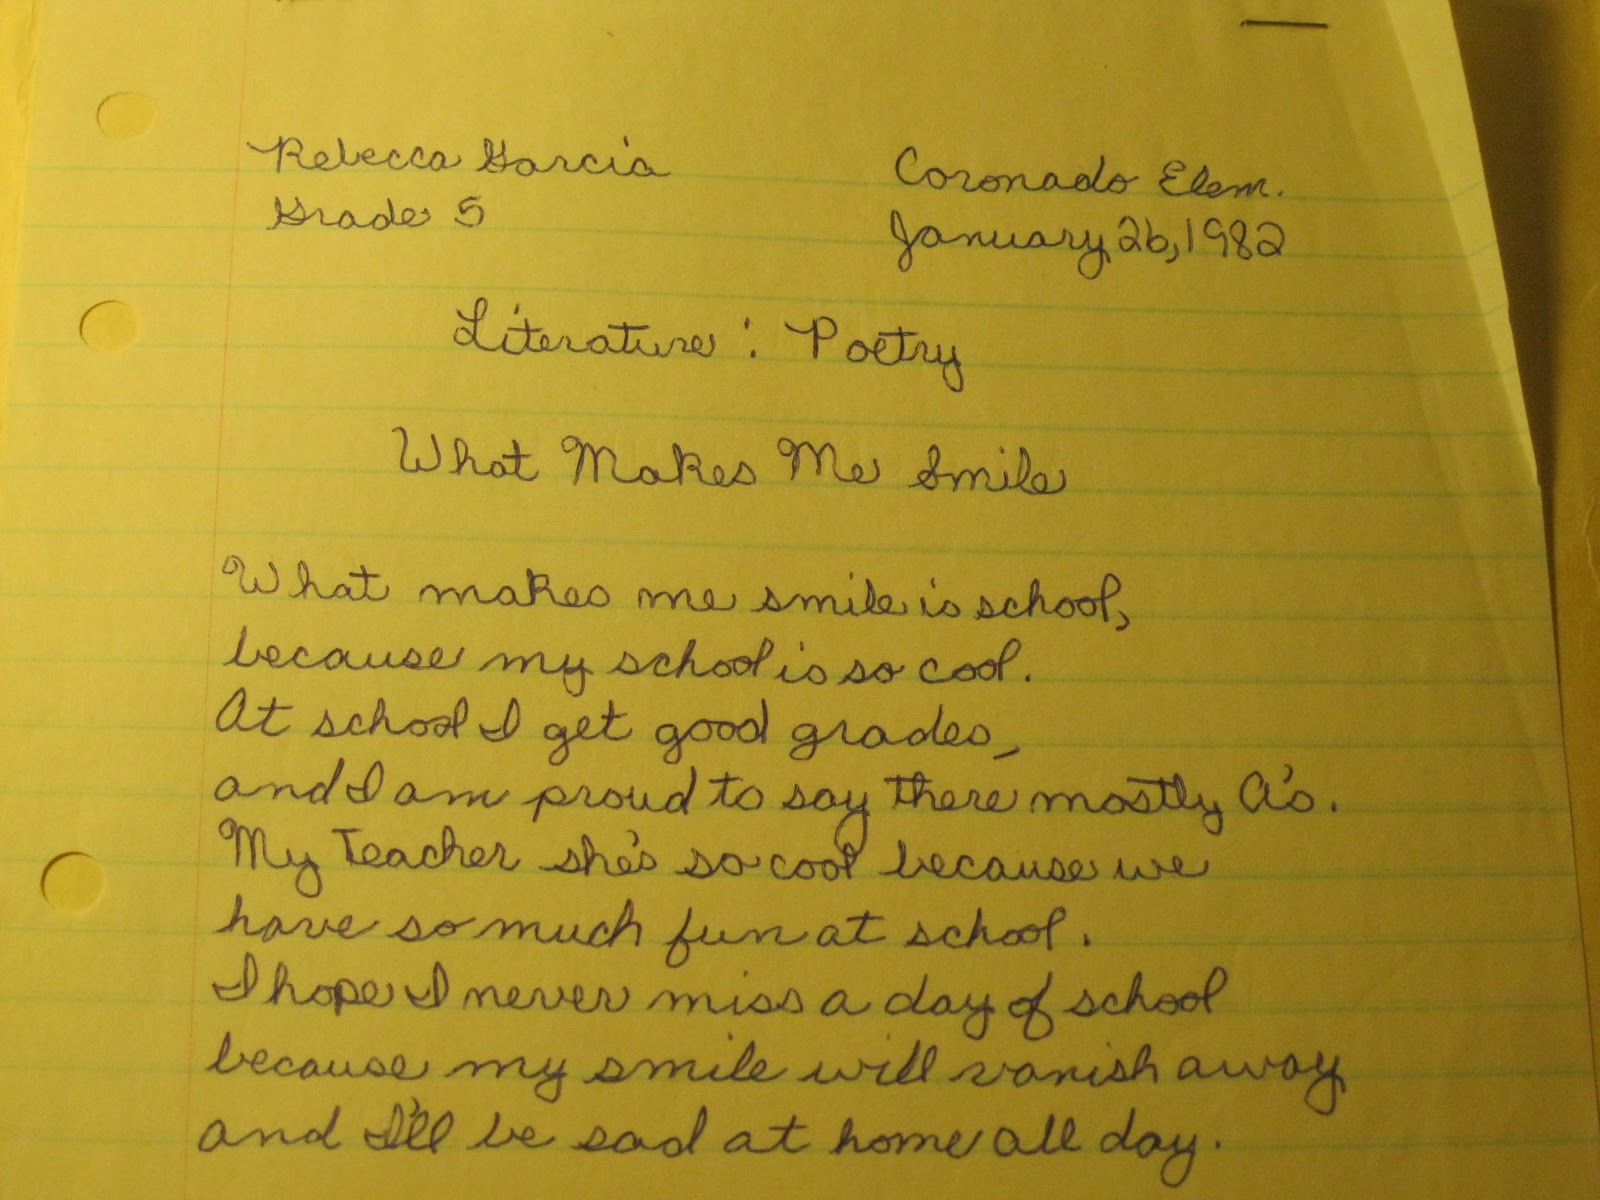 Rebecca Garcia Coronado Elem.
Grade 5 January 26, 1982
Literature : Poetry
What Makes Me Smile
What makes me smile is school,
because my school is so cool.
At school I get good grades,
and I am proud to say there mostly A's.
My Teacher she's so cool because we
have so much fun at school.
I hope I never miss a day of school
because my smile will vanish away
and I'll be sad at home all day.